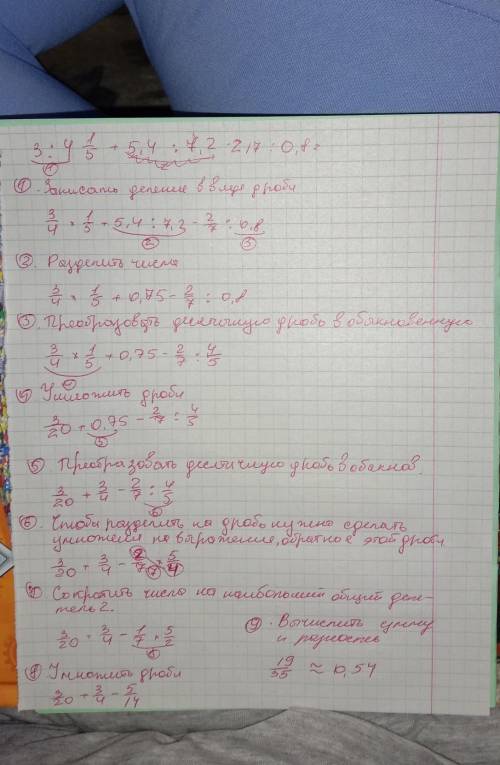 3 : 4 1/5 + 5,4 : 7,2 - 2,17 : 0,8 =
① . Записать деление в виде дроби
3/4 × 1/5 + 5,4 : 7,2 - 2/7 : 0,8
② ③
② . Разделить числа
3/4 × 1/5 + 0,75 - 2/7 : 0,8
③ . Преобразовать десятичную дробь в обыкновенную
3/4 × 1/5 + 0,75 - 2/7 : 4/5
④ Умножить дроби
3/20 + 0,75 - 2/7 : 4/5
⑤
⑤ Преобразовать десятичную дробь в обыкнов.
3/20 + 3/4 - 2/7 : 4/5
⑥
⑥ . Чтобы разделить на дробь нужно сделать
умножение на выражение, обратное этой дроби
3/20 + 3/4 - 2/7 × 5/4
⑦
⑦ . Сократить числа на наибольший общий дели-
тель 2.
3/20 + 3/4 - 1/7 × 5/2
⑧
⑧ Умножить дроби
3/20 + 3/4 - 5/14
⑨ . Вычислить сумму
и разность
19/35 ≈ 0,54